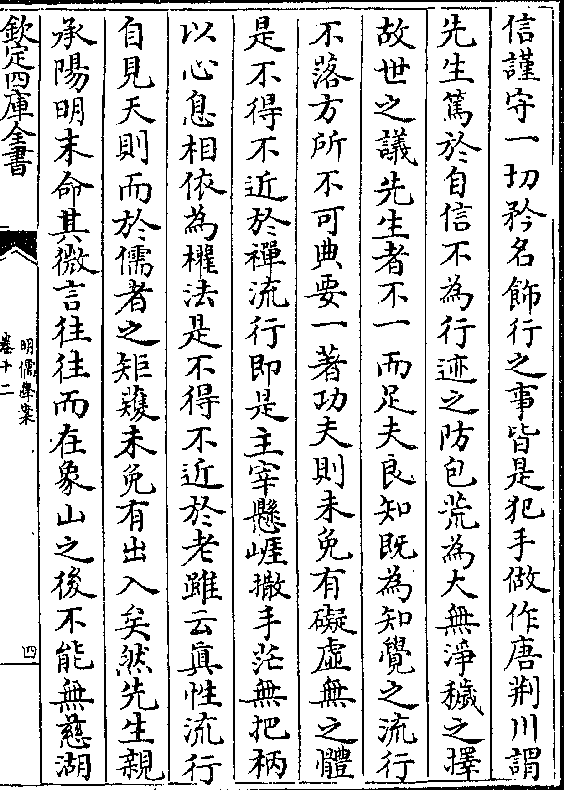 信謹守一切矜名飾行之事皆是犯手做作唐荆川謂
先生篤於自信不為行迹之防包荒為大無淨穢之擇
故世之議先生者不一而足夫良知既為知覺之流行
不落方所不可典要一著功夫則未免有礙虛無之體
是不得不近於禪流行即是主宰懸崕撒手茫無把柄
以心息相依為權法是不得不近於老雖云真性流行
自見天則而於儒者之矩矱未免有出入矣然先生親
承陽明末命其微言往往而在象山之後不能無慈湖
欽定四庫全書
明儒學案
卷十二
四